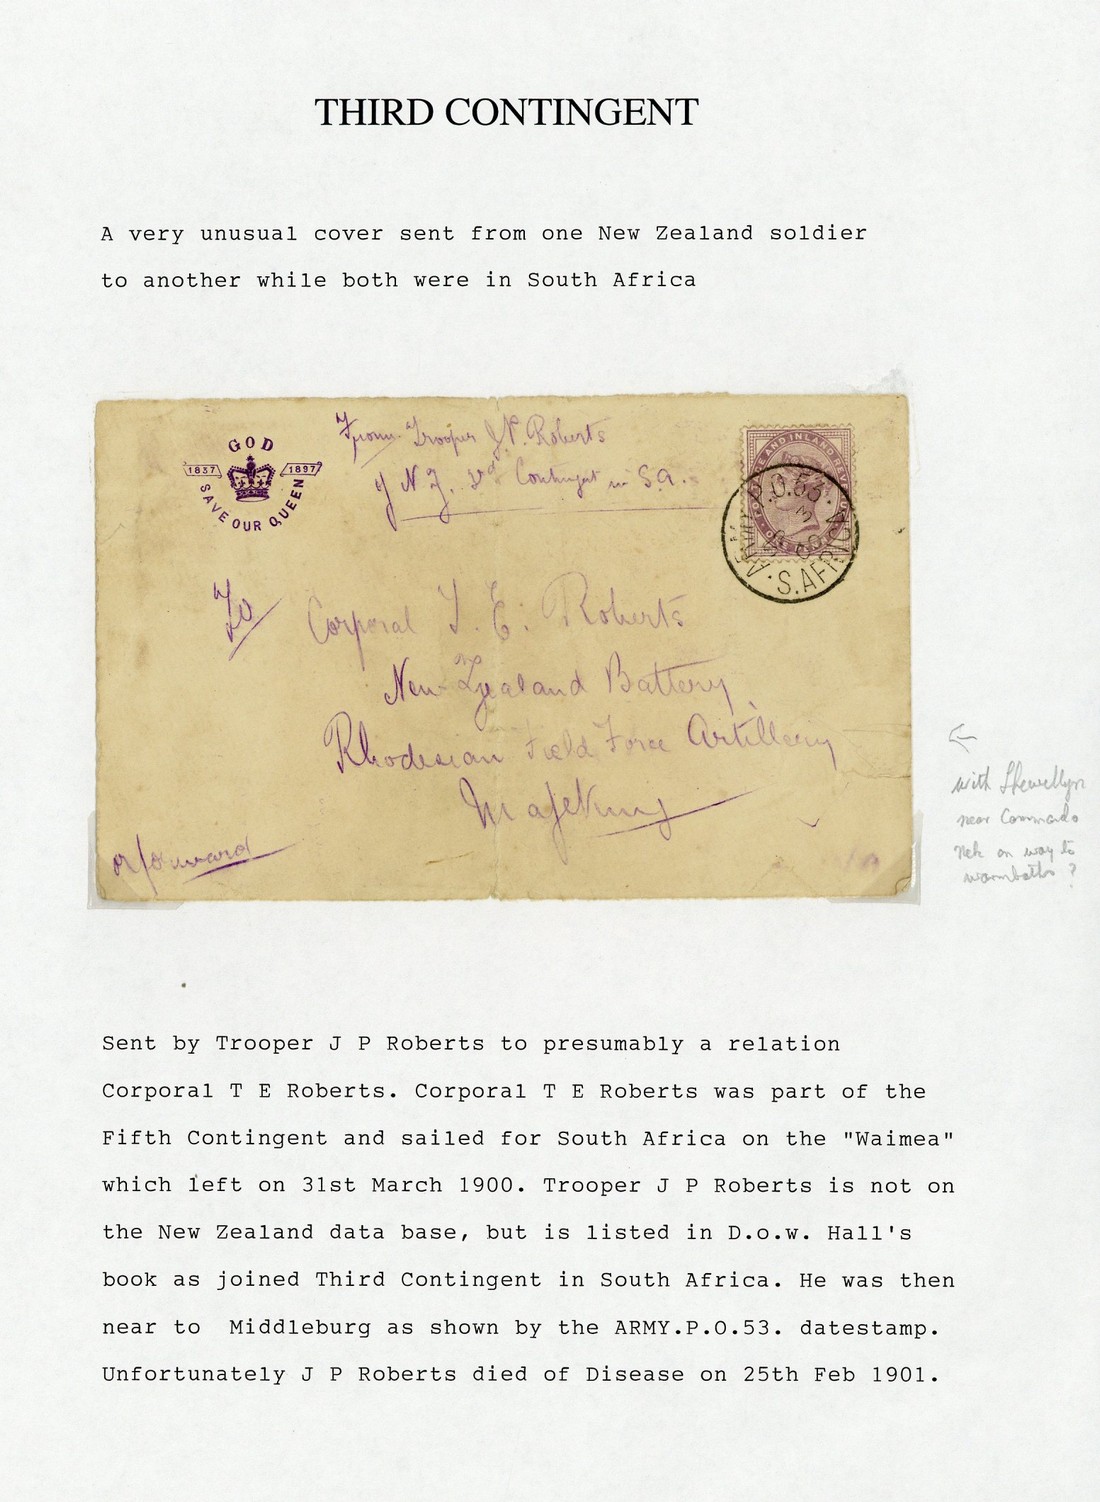 THIRD CONTINGENT
A very unusual cover sent from one New Zealand soldier
to another while both were in South Africa
GOD
1837 1897
SAVE OUR QUEEN
From Trooper J P. Roberts
of N Z. 3rd Contingent in S.A.
POSTAGE AND INLAND REVENUE
ARMY P.O.53.
S. AFRICA
To Corporal T. E. Roberts
New Zealand Battery
Rhodesian Field Force Artillery
Mafeking
or forward
with Llewellyn
near Commando
Nek on way to
warmbaths ?
Sent by Trooper J P Roberts to presumably a relation
Corporal T E Roberts. Corporal T E Roberts was part of the
Fifth Contingent and sailed for South Africa on the "Waimea"
which left on 31st March 1900. Trooper J P Roberts is not on
the New Zealand data base, but is listed in D.o.w. Hall's
book as joined Third Contingent in South Africa. He was then
near to  Middleburg as shown by the ARMY.P.O.53. datestamp.
Unfortunately J P Roberts died of Disease on 25th Feb 1901.